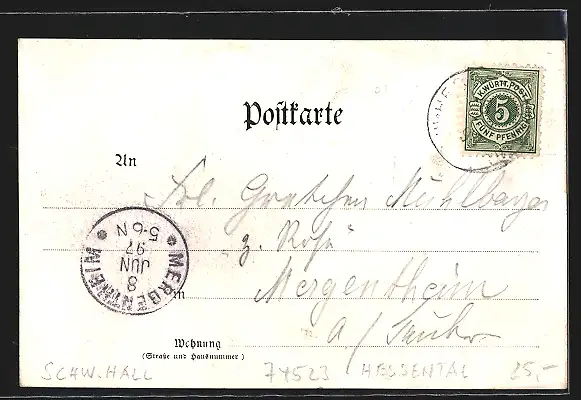 Postkarte
K. WÜRTT. POST
5
FÜNF PFENNIG
An
Frl. Gretchen Mühlberger
z. Rose
in
Mergentheim
a/Tauber
MERGENTHEIM
8
JUN
97
5-6N
Wohnung
(Straße und Hausnummer)
SCHW. HALL 74523 HESSENTAL 25,-